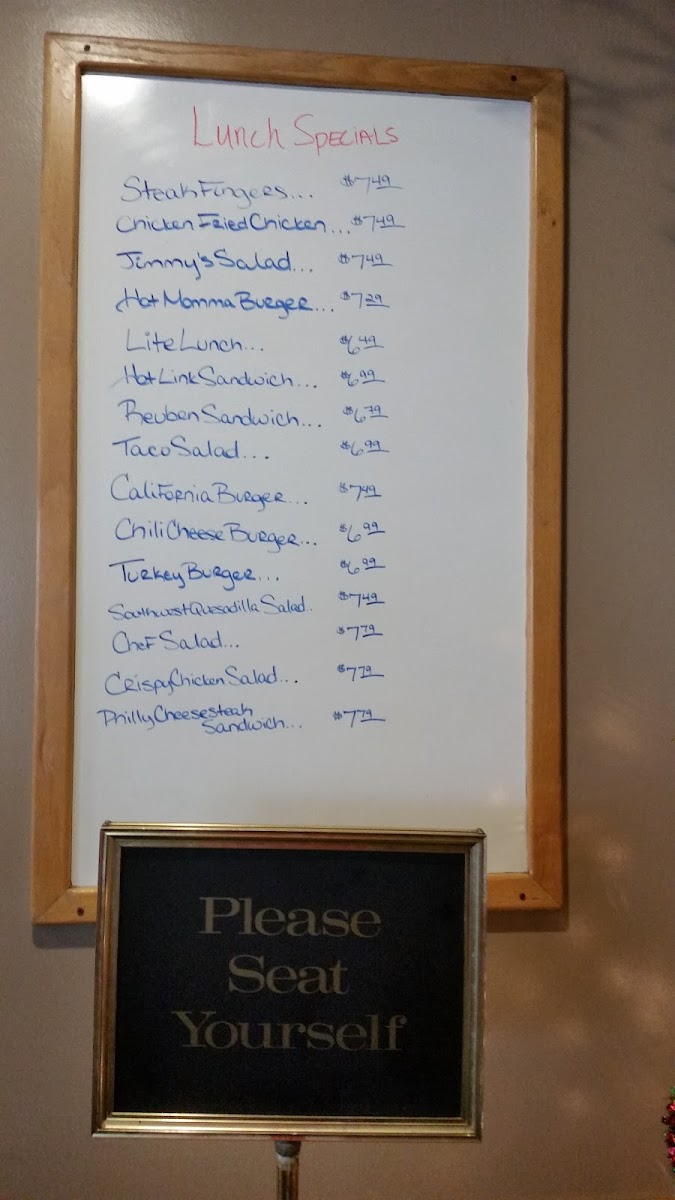 Lunch Specials
Steak Fingers... $7.49
Chicken Fried Chicken... $7.49
Jimmy's Salad... $7.49
Hot Momma Burger... $7.29
Lite Lunch... $6.49
Hot Link Sandwich... $6.99
Reuben Sandwich... $6.79
Taco Salad... $6.99
California Burger... $7.49
Chili Cheese Burger... $6.99
Turkey Burger... $6.99
Southwest Quesadilla Salad.. $7.49
Chef Salad... $7.79
Crispy Chicken Salad... $7.79
Philly Cheesesteak
Sandwich... $7.79
Please
Seat
Yourself